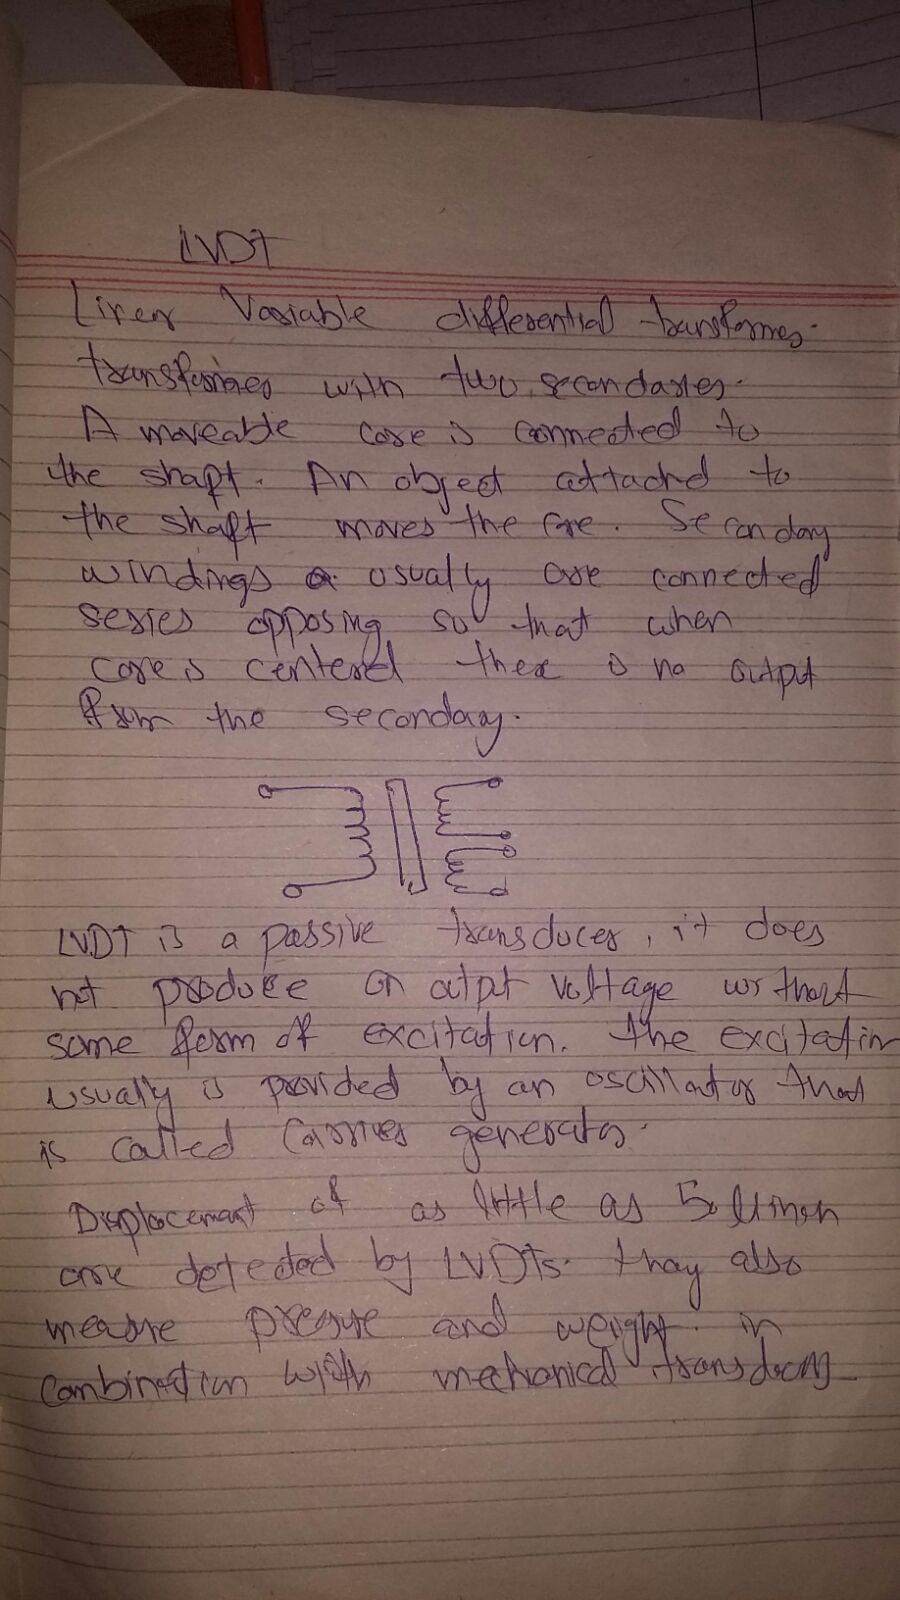 LVDT
Linear Variable differential transformer.
transformer with two secondaries.
A moveable core is connected to
the shaft. An object attached to
the shaft moves the core. Secondary
windings usually are connected
series opposing so that when
core is centered there is no output
from the secondary.
LVDT is a passive transducer, it does
not produce an output voltage without
some form of excitation. The excitation
usually is provided by an oscillator that
is called Carrier generator.
Displacement of as little as 50 μinch
are detected by LVDTs. they also
measure pressure and weight in
combination with mechanical transducers